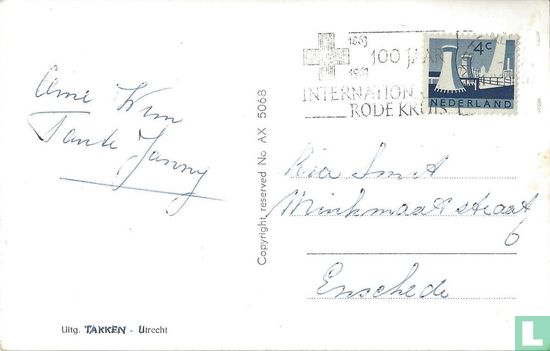 1863
100 JAAR
1963
INTERNATION
RODE KRUIS
4c
NEDERLAND
Wim
Tante Janny
Copyright reserved No AX 5068
Ria Smit
Minkmaatstraat
6
Enschede
Uitg. TAKKEN - Utrecht
L